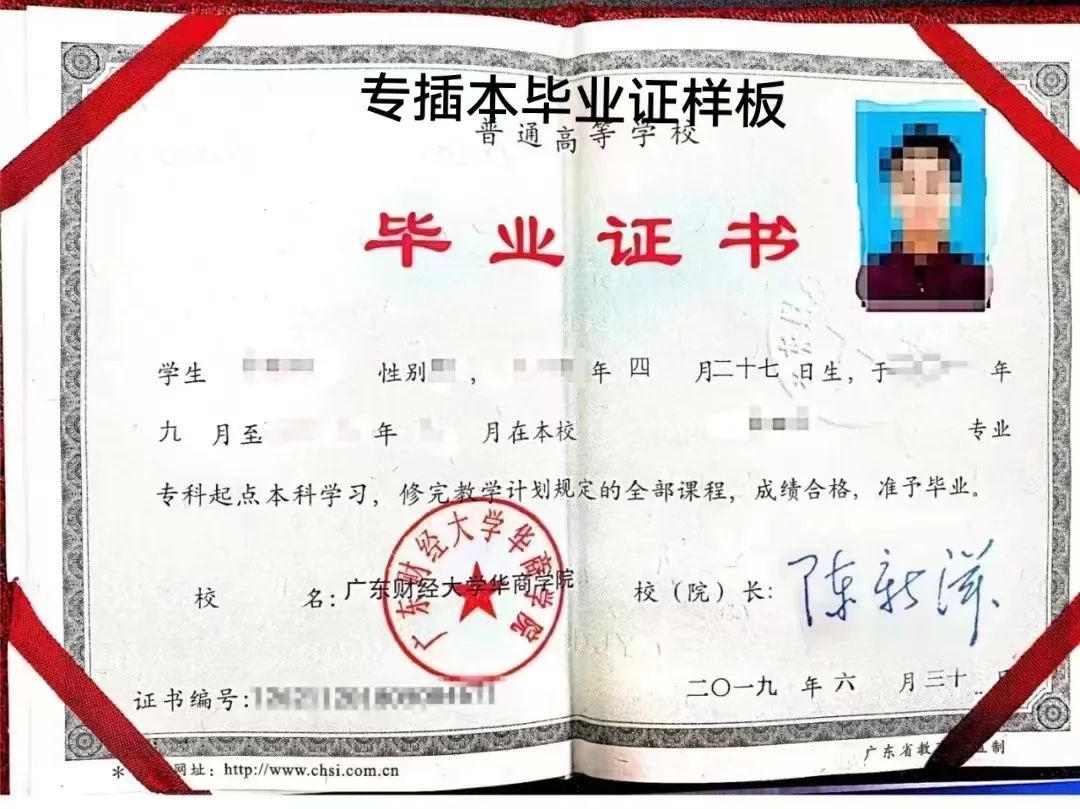 专插本毕业证样板
普通高等学校
毕业证书
学生 性别 , 年 四 月二十七 日生, 于 年
九 月至 年 月在本校 专业
专科起点本科学习, 修完教学计划规定的全部课程, 成绩合格, 准予毕业。
广东财经大学华商学院
校 名: 广东财经大学华商学院
校(院)长: 陈新滋
证书编号:
二〇一九 年 六 月三十 日
广东省教 监制
* 网址: http://www.chsi.com.cn